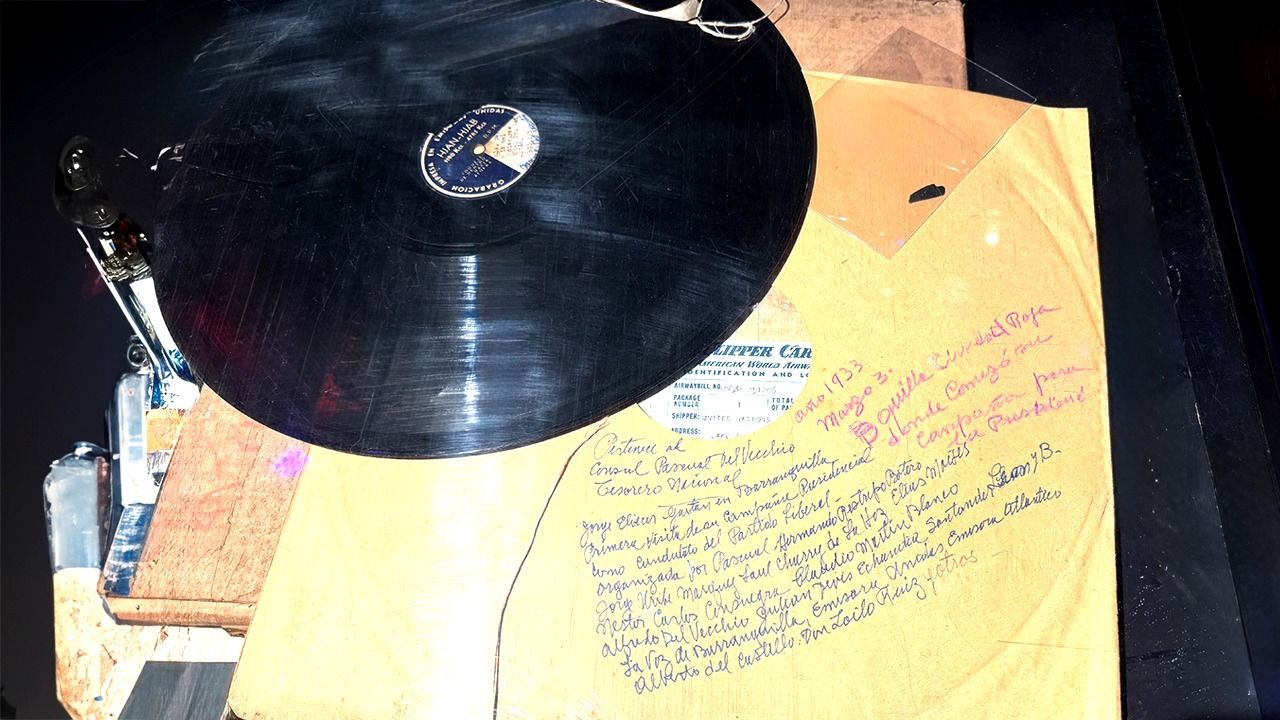 GRABACION IMPRESA EN UNIDAS
HJAN-HJAB
R.P.M.
CLIPPER CAR
AMERICAN WORLD AIRWA
DENTIFICATION AND LO
AIRWAYBILL NO.
PACKAGE NUMBER 1 TOTAL
OF PA
SHIPPER: UNITED NATIONS
ADDRESS:
año 1933
Marzo 3.
B quilla Ciudad Roja
donde Comenzó su
Campaña para
la Presidencia
Pertenece al
Consul Pascual Del Vecchio
Tesorero Nacional
Jorge Eliecer Gaitan en Barranquilla
Primera visita de su Campaña Presidencial
como candidato del Partido Liberal -
organizada por Pascual Hermando Restrepo Botero
Jorge Uribe Marquez Saul Charry de La Hoz Elias Moises
Nestor Carlos Consuegra, Claudio Martin Blanco
Alfredo Del Vecchio Julian Devis Echandia, Santander Leon y B.
La Voz de Barranquilla, Emisora Emisora Atlantico
Alberto del Castillo. Don Loilo Ruiz y otros